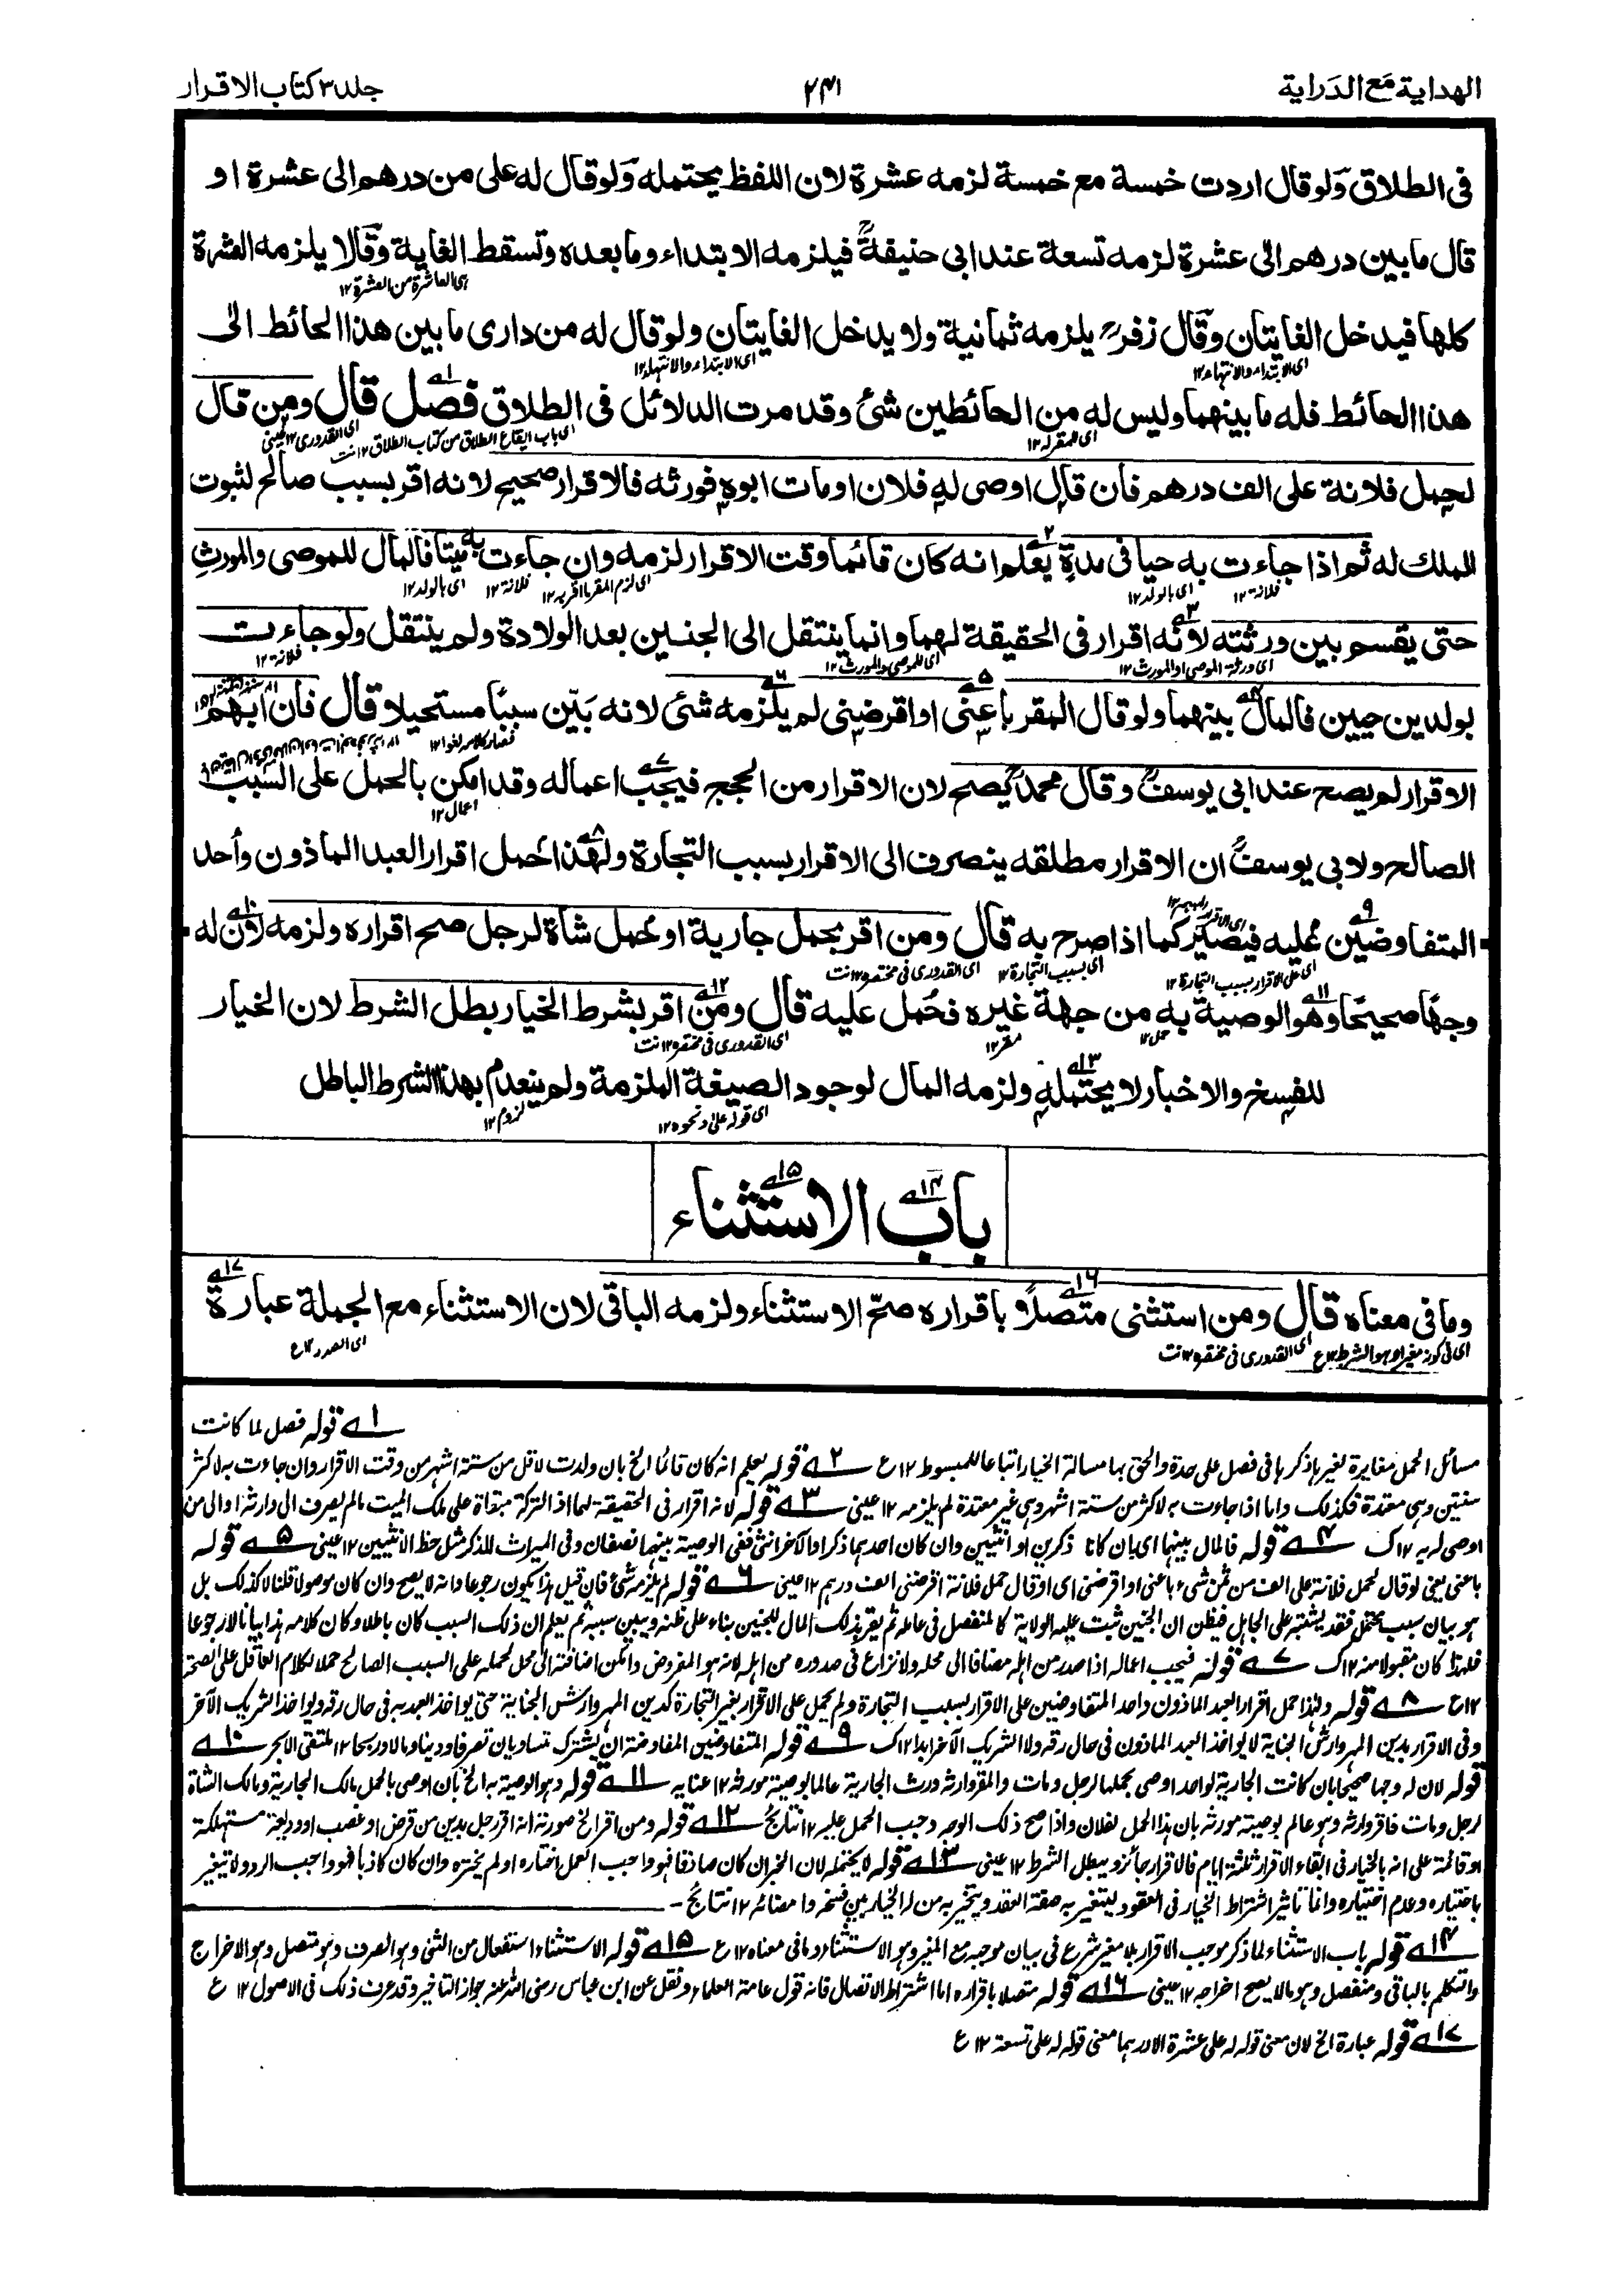 الهداية مع الدراية
٢٣١
جلد ٣ كتاب الاقرار
فى الطلاق ولو قال اردت خمسة مع خمسة لزمه عشرة لان اللفظ يحتمله ولو قال له على من درهم الى عشرة او
قال ما بين درهم الى عشرة لزمه تسعة عند ابى حنيفة فيلزمه الابتداء وما بعده وتسقط الغاية وقالا يلزمه العشرة
هى العاشرة من العشرة ١٢
كلها فيدخل الغايتان وقال زفر يلزمه ثمانية ولا يدخل الغايتان ولو قال له من دارى ما بين هذا الحائط الى
اى الابتداء والانتهاء ١٢ اى الابتداء والانتهاء ١٢
هذا الحائط فله ما بينهما وليس له من الحائطين شئ وقد مرت الدلائل فى الطلاق فصل قال ومن قال
اى للمقر له ١٢ اى باب ايقاع الطلاق من كتاب الطلاق ١٢ نت اى القدورى ١٢ عينى
لحمل فلانة على الف درهم فان قال اوصى له فلان او مات ابوه فورثه فالاقرار صحيح لانه اقر بسبب صالح لثبوت
الملك له ثم اذا جاءت به حيا فى مدة يعلم انه كان قائما وقت الاقرار لزمه وان جاءت به ميتا فالمال للموصى والمورث
فلانة ١٢ اى بالولد ١٢ اى لزم المقر ما اقر به ١٢ فلانة ١٢ اى بالولد ١٢
حتى يقسم بين ورثته لانه اقرار فى الحقيقة لهما وانما ينتقل الى الجنين بعد الولادة ولم ينتقل ولو جاءت
اى ورثة الموصى او المورث ١٢ اى للموصى والمورث ١٢ فلانة ١٢
بولدين حيين فالمال بينهما ولو قال المقر باعنى او اقرضنى لم يلزمه شئ لانه بين سببا مستحيلا قال فان ابهم
فصار كلامه لغوا ١٢
الاقرار لم يصح عند ابى يوسف وقال محمد يصح لان الاقرار من الحجج فيجب اعماله وقد امكن بالحمل على السبب
اعمال ١٢
الصالح ولابى يوسف ان الاقرار مطلقه ينصرف الى الاقرار بسبب التجارة ولهذا حمل اقرار العبد الماذون واحد
المتفاوضين عليه فيصير كما اذا صرح به قال ومن اقر بحمل جارية او بحمل شاة لرجل صح اقراره ولزمه لان له
اى على الاقرار بسبب التجارة ١٢ اى بسبب التجارة ١٢ اى القدورى فى مختصره ١٢ نت
وجها صحيحا وهو الوصية به من جهة غيره فحمل عليه قال ومن اقر بشرط الخيار بطل الشرط لان الخيار
حمل ١٢ مقر ١٢ اى القدورى فى مختصره ١٢ نت
للفسخ والاخبار لا يحتمله ولزمه المال لوجود الصيغة الملزمة ولم ينعدم بهذا الشرط الباطل
اى قوله على ونحوه ١٢ لزوم ١٢
باب الاستثناء
وما فى معناه قال ومن استثنى متصلا باقراره صح الاستثناء ولزمه الباقى لان الاستثناء مع الجملة عبارة
اى فى كونه مغيرا وهو الشرط ١٢ ع اى القدورى فى مختصره ١٢ نت اى الصدر ١٢ ع
١ قوله فصل لما كانت
مسائل الحمل مغايرة لغيرها ذكرها فى فصل على حدة والحق بها مسالة الخيار اتباعا للمبسوط ١٢ ع ٢ قوله يعلم انه كان قائما الخ بان ولدت لاقل من ستة اشهر من وقت الاقرار وان جاءت به لاكثر
سنتين وهى معتدة فكذلك واما اذا جاءت به لاكثر من ستة اشهر وهى غير معتدة لم يلزمه ١٢ عينى ٣ قوله لانه اقرار فى الحقيقة لهما اذ التركة مبقاة على ملك الميت ما لم يصرف الى وارثه او الى من
اوصى له به ١٢ ك ٤ قوله فالمال بينهما اى بان كانا ذكرين او انثيين وان كان احدهما ذكرا والآخر انثى ففى الوصية بينهما نصفان وفى الميراث للذكر مثل حظ الانثيين ١٢ عينى ٥ قوله
باعنى يعنى لو قال لحمل فلانة على الف من ثمن شىء باعنى او اقرضنى اى او قال حمل فلانة اقرضنى الف درهم ١٢ عينى ٦ قوله لم يلزمه شئ فان قيل هذا يكون رجوعا وانه لا يصح وان كان موصولا قلنا لا كذلك بل
هو بيان سبب محتمل فقد يشتبه على الجاهل فيظن ان الجنين ثبت عليه الولاية كالمنفصل فيعامله ثم يقر بذلك المال للجنين بناء على ظنه ويبين سببه ثم يعلم ان ذلك السبب كان باطلا وكان كلامه هذا بيانا لا رجوعا
فلهذا كان مقبولا منه ١٢ ك ٧ قوله فيجب اعماله اذا صدر من اهله مضافا الى محله ولا نزاع فى صدوره من اهله لانه هو المفروض وامكن اضافته الى محل لحمله على السبب الصالح حملا لكلام العاقل على الصحة
١٢ ع ٨ قوله ولهذا حمل اقرار العبد الماذون واحد المتفاوضين على الاقرار بسبب التجارة ولم يحمل على الاقرار بغير التجارة كدين المهر وارش الجناية حتى يواخذ العبد به فى حال رقه ويواخذ الشريك الآخر
وفى الاقرار بدين المهر وارش الجناية لا يواخذ العبد الماذون فى حال رقه ولا الشريك الآخر ابدا ١٢ ك ٩ قوله المتفاوضين المفاوضة ان يشترك متساويان تصرفا ودينا ومالا وربحا ١٢ ملتقى الابحر ١٠
قوله لان له وجها صحيحا بان كانت الجارية لواحد اوصى بحملها لرجل ومات والمقر وارثه ورث الجارية عالما بوصية مورثه ١٢ عنايه ١١ قوله وهو الوصية به الخ بان اوصى بالحمل مالك الجارية ومالك الشاة
لرجل ومات فاقر وارثه وهو عالم بوصية مورثه بان هذا الحمل لفلان واذا صح ذلك الوجه وجب الحمل عليه ١٢ نتائج ١٢ قوله ومن اقر الخ صورته انه اقر رجل بدين من قرض او غصب او وديعة مستهلكة
او قائمة على انه بالخيار فى ابقاء الاقرار ثلثة ايام فالاقرار جائز ويبطل الشرط ١٢ عينى ١٣ قوله لا يحتمله لان الخبر ان كان صادقا فهو واجب العمل اختاره او لم يختره وان كان كاذبا فهو واجب الرد ولا يتغير
باختياره وعدم اختياره وانما تاثير اشتراط الخيار فى العقود ليتغير به صفة العقد ويتخير به من له الخيار بين فسخه وامضائه ١٢ نتائج
١٤ قوله باب الاستثناء لما ذكر موجب الاقرار بلا مغير شرع فى بيان موجبه مع المغير وهو الاستثناء وما فى معناه ١٢ ع ١٥ قوله الاستثناء استفعال من الثنى وهو الصرف وهو متصل وهو الاخراج
والتكلم بالباقى ومنفصل وهو ما لا يصح اخراجه ١٢ عينى ١٦ قوله متصلا باقراره اما اشتراط الاتصال فانه قول عامة العلماء ونقل عن ابن عباس رضى الله عنه جواز التاخير وقد عرف ذلك فى الاصول ١٢ ع
١٧ قوله عبارة الخ لان معنى قوله له على عشرة الا درهما معنى قوله له على تسعة ١٢ ع